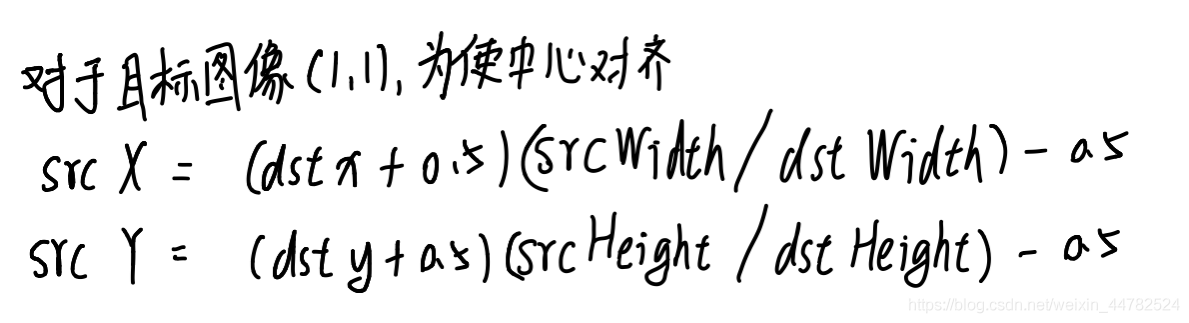 对于目标图像(1,1),为使中心对齐
src X = (dst x + 0.5)(srcWidth / dst Width) - 0.5
src Y = (dst y + 0.5)(srcHeight / dst Height) - 0.5
https://blog.csdn.net/weixin_44782524